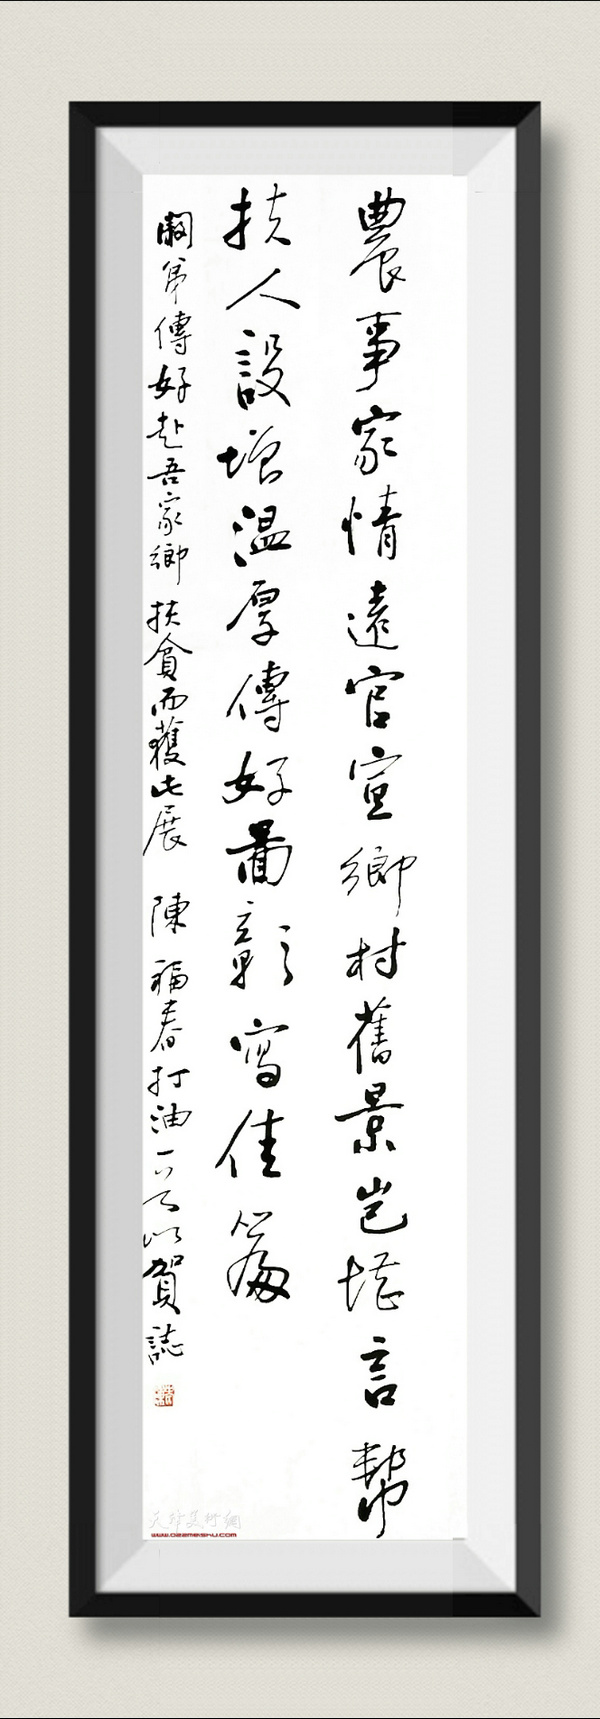 農事家情遠官宣鄉村舊景豈堪言幫
扶人設壞溫厚傳好圖彰寫佳篇
弟傳好赴吾家鄉扶貧而獲此展 陳福春打油一首以賀誌
天津美術網
www.022meishu.com